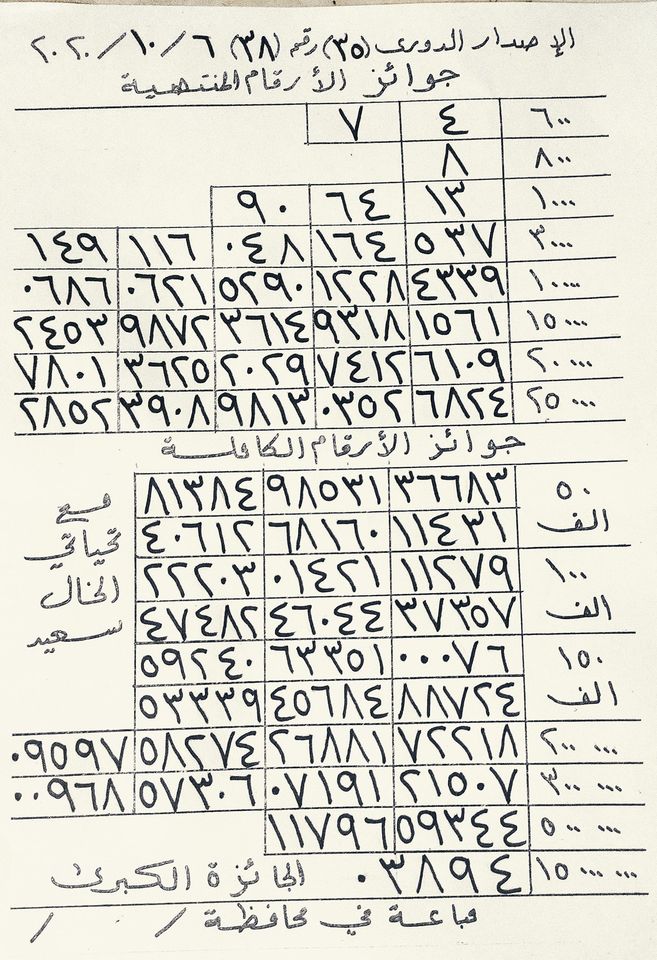 الإصدار الدوري (٣٥) رقم (٣٨) ٦ / ١٠ / ٢٠٢٠
جوائز الأرقام المنتهية
٦٠٠ ٤ ٧
٨٠٠ ٨
١٠٠٠ ١٣ ٦٤ ٩٠
٣٠٠٠ ٥٣٧ ١٦٤ ٠٤٨ ١١٦ ١٤٩
١٠٠٠٠ ٤٣٣٩ ١٢٢٨ ٥٢٩٠ ٠٦٢١ ٠٦٨٦
١٥٠٠٠ ١٥٦١ ٩٣١٨ ٣٦١٤ ٩٨٧٢ ٢٤٥٣
٢٠٠٠٠ ٦١٠٩ ٧٤١٢ ٢٠٢٩ ٣٦٢٥ ٧٨٠١
٢٥٠٠٠ ٦٨٢٤ ٠٣٥٢ ٩٨١٣ ٣٩٠٨ ٢٨٥٢
جوائز الأرقام الكاملة
٥٠ الف ٣٦٦٨٣ ٩٨٥٣١ ٨١٣٨٤
١١٤٣١ ٦٨١٦٠ ٤٠٦١٢
١٠٠ الف ١١٢٧٩ ٠١٤٢١ ٢٢٢٠٣
٣٧٣٥٧ ٤٦٠٤٤ ٤٧٤٨٢
١٥٠ الف ٠٠٠٧٦ ٦٣٣٥١ ٥٩٢٤٠
٨٨٧٢٤ ٤٥٦٨٤ ٥٣٣٣٩
٢٠٠٠٠٠ ٧٢٢١٨ ٢٦٨٨١ ٥٨٢٧٤ ٠٩٥٩٧
٣٠٠٠٠٠ ٢١٥٠٧ ٠٧١٩١ ٥٧٣٠٦ ٠٠٩٦٨
٥٠٠٠٠٠ ٥٩٣٤٤ ١١٧٩٦
١٥٠٠٠٠٠٠ ٠٣٨٩٤ الجائزة الكبرى
مباعة في محافظة / /
مع
تحياتي
الخال
سعيد